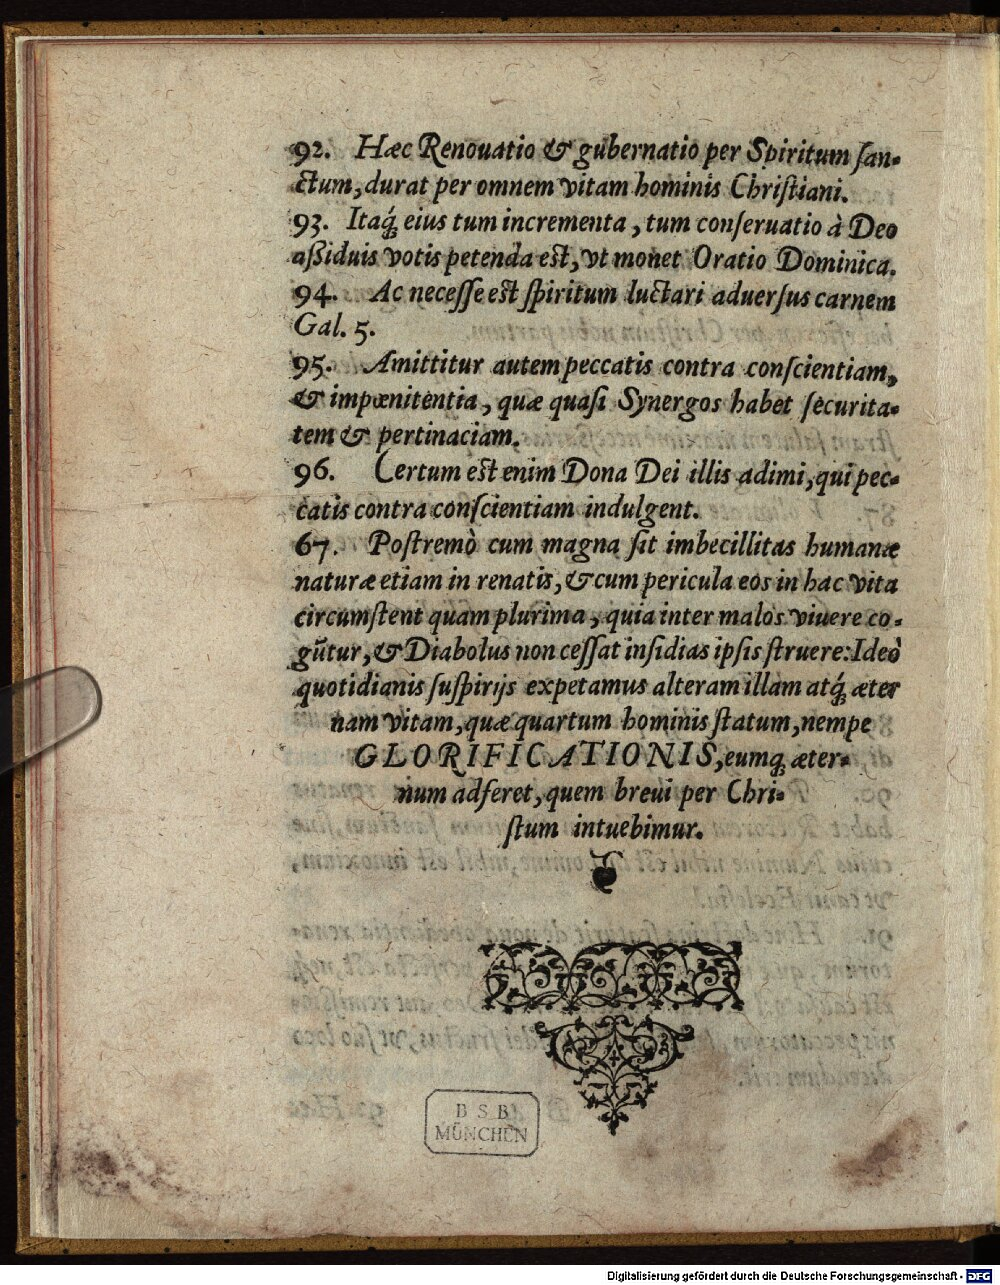 92. Hæc Renouatio & gubernatio per Spiritum ſan-
ctum, durat per omnem vitam hominis Chriſtiani.
93. Itaq́; eius tum incrementa, tum conſeruatio à Deo
aſſiduis votis petenda est, vt monet Oratio Dominica.
94. Ac neceſſe est ſpiritum luctari aduerſus carnem
Gal. 5.
95. Amittitur autem peccatis contra conſcientiam,
& impœnitentia, quæ quaſi Synergos habet ſecurita-
tem & pertinaciam.
96. Certum est enim Dona Dei illis adimi, qui pec-
catis contra conſcientiam indulgent.
67. Poſtremò cum magna ſit imbecillitas humanæ
naturæ etiam in renatis, & cum pericula eos in hac vita
circumſtent quam plurima, quia inter malos viuere co-
gũtur, & Diabolus non ceſſat inſidias ipſis ſtruere: Ideò
quotidianis ſuſpirijs expetamus alteram illam atq́; æter
nam vitam, quæ quartum hominis ſtatum, nempe
GLORIFICATIONIS, eumq́; æter-
num adferet, quem breui per Chri-
ſtum intuebimur.
B S B
MÜNCHEN
Digitalisierung gefördert durch die Deutsche Forschungsgemeinschaft - DFG